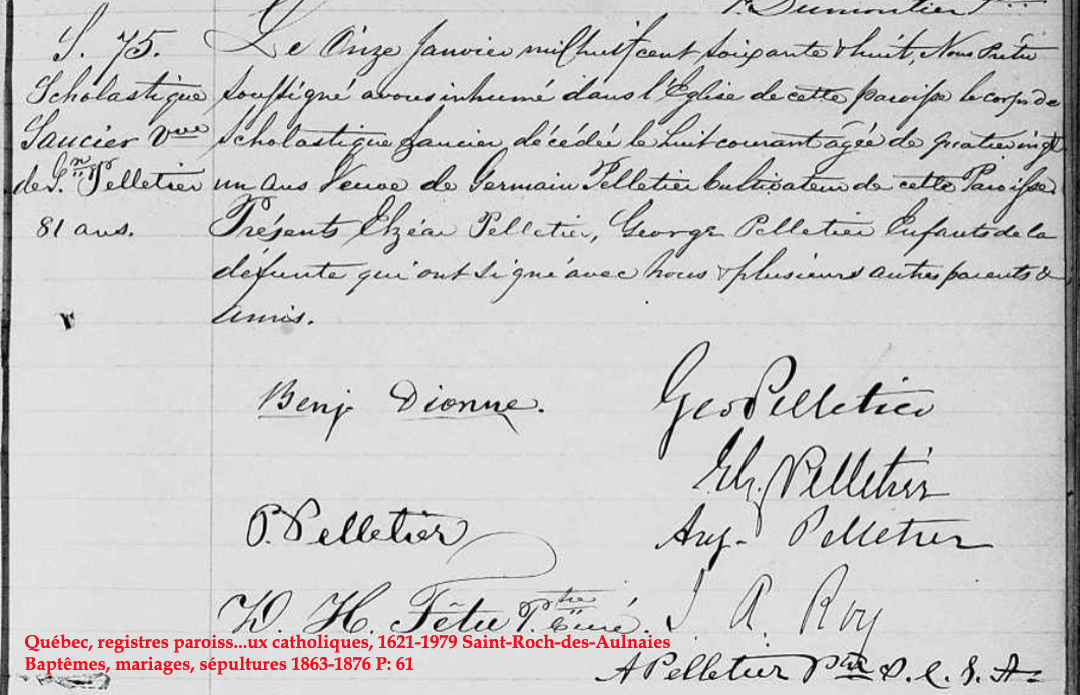 P. Dumontier Ptre
S. 75.
Scholastique
Saucier Vve
de Gn Pelletier
81 ans.
Le Onze Janvier mil huit cent soixante & huit, Nous Prêtre
soussigné avons inhumé dans l'Église de cette paroisse le corps de
Scholastique Saucier, décédée le huit courant âgée de quatre vingt
un ans Veuve de Germain Pelletier Cultivateur de cette Paroisse.
Présents Elzéar Pelletier, George Pelletier Enfants de la
défunte qui ont signé avec nous & plusieurs autres parents &
amis.
Benj. Dionne.
Geo Pelletier
Elz. Pelletier
P. Pelletier
Aug. Pelletier
D. H. Têtu Ptre Curé.
J. A. Roy
A Pelletier Ptre
Québec, registres paroiss...ux catholiques, 1621-1979 Saint-Roch-des-Aulnaies
Baptêmes, mariages, sépultures 1863-1876 P: 61